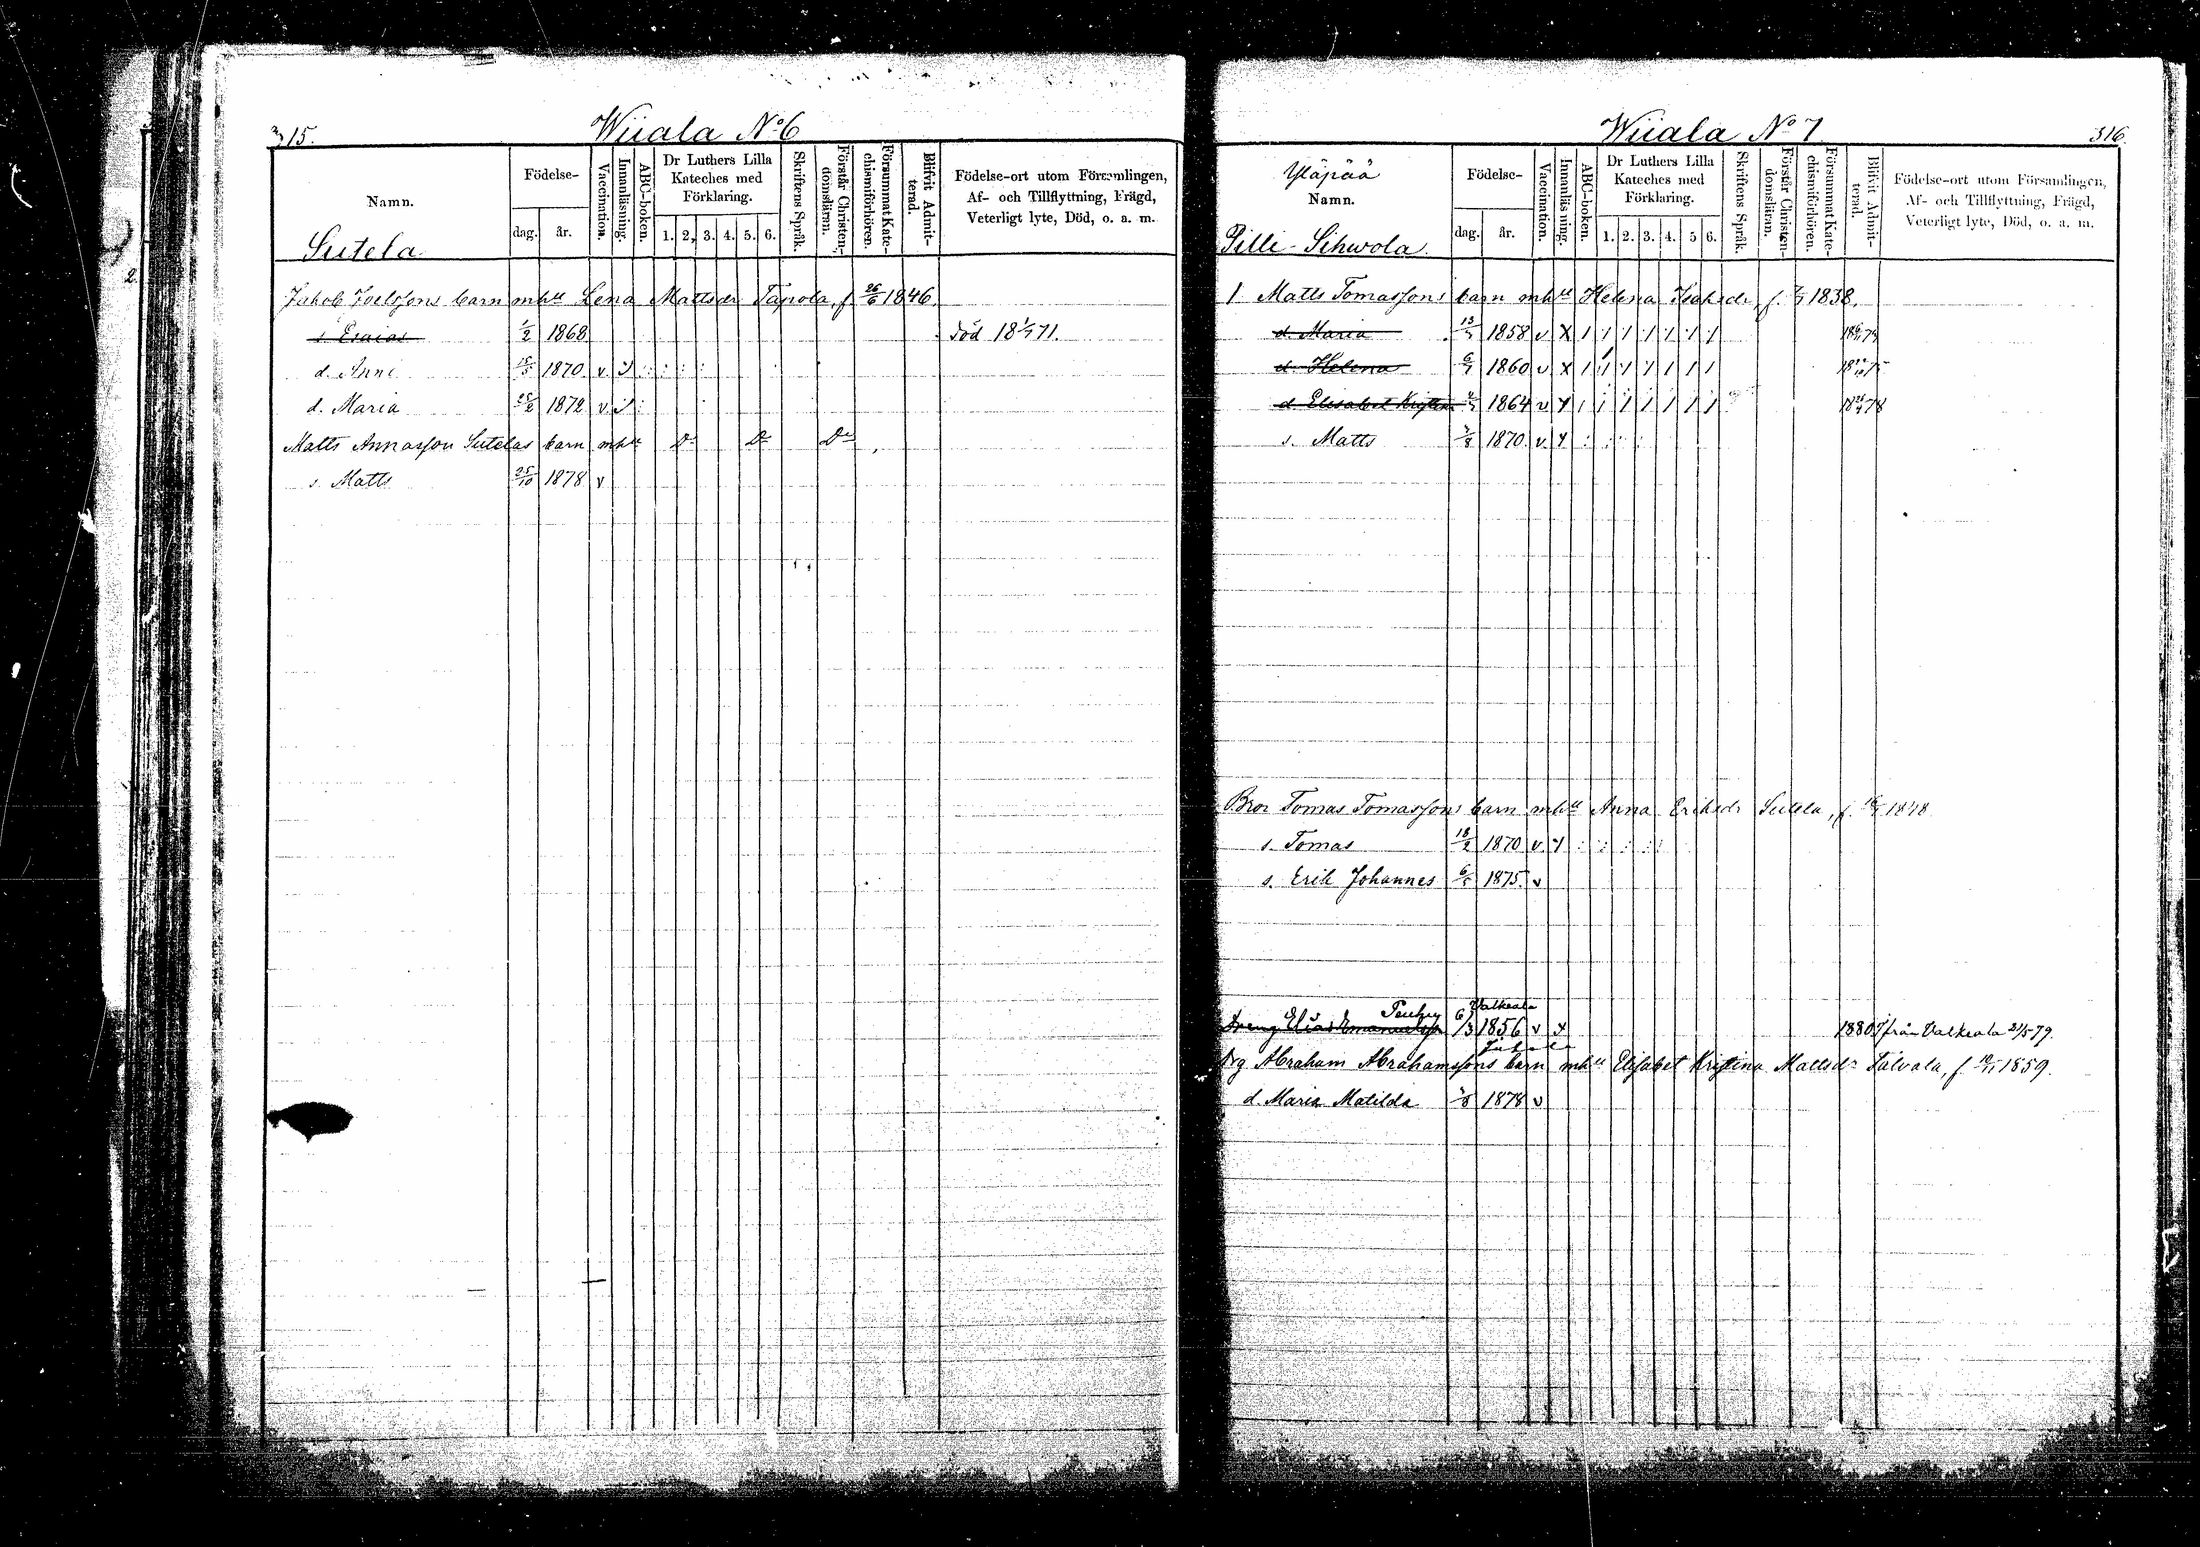 315.
Wiiala No 6
Namn.
Födelse-
dag.
år.
Vaccination.
Innanläsning.
ABC-boken.
Dr Luthers Lilla
Kateches med
Förklaring.
1. 2. 3. 4. 5. 6.
Skriftens Språk.
Förstår Christen-
domsläran.
Försummat Kate-
chismiförhören.
Blifvit Admit-
terad.
Födelse-ort utom Församlingen,
Af- och Tillflyttning, Frägd,
Veterligt lyte, Död, o. a. m.
Sutela
Jakob Joelssons barn mhu Lena Mattsdr Tapola, f. 26/6 1846.
s Esaias 1/2 1868 död 18 1/7 71.
d. Anni 15/5 1870. v
d. Maria 25/2 1872 v
Matts Annasson Sutelas barn mhu Do Do Do
s Matts 25/10 1878 v
Wiiala No 7
316.
Yläpää
Namn.
Födelse-
dag.
år.
Vaccination.
Innanläsning.
ABC-boken.
Dr Luthers Lilla
Kateches med
Förklaring.
1. 2. 3. 4. 5 6.
Skriftens Språk.
Förstår Christen-
domsläran.
Försummat Kate-
chismiförhören.
Blifvit Admit-
terad.
Födelse-ort utom Församlingen,
Af- och Tillflyttning, Frägd,
Veterligt lyte, Död, o. a. m.
Pilli-Sihwola
1 Matts Tomassons barn mhu Helena Isaksdr, f. 1838.
d. Maria 1858 v X
d. Helena 1860 v X
d Elisabet Kristina 1864 v
s. Matts 1870. v
Bror Tomas Tomassons barn mhu Anna Eriksdr Sutela, f. 1848
s. Tomas 18/2 1870 v
s. Erik Johannes 6/5 1875. v
Valkeala
Dreng Elias Emanuelss 6/3 1856 v x 1880 från Valkeala 21/5 79.
Drg Abraham Abrahamssons barn mhu Elisabet Kristina Mattsdr f. 1859.
d. Maria Matilda 1878 v